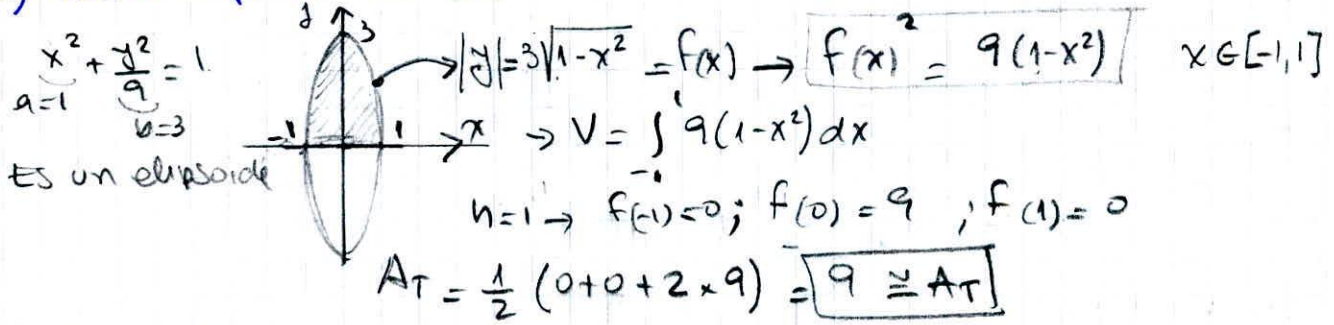 x² + y²/9 = 1
a=1 b=3
Es un elipsoide
y 3 -1 1 x
|y| = 3√(1-x²) = f(x) → f(x)² = 9(1-x²) x ∈ [-1,1]
→ V = ∫₋₁¹ 9(1-x²) dx
h=1 → f(-1)=0; f(0) = 9 ; f(1) = 0
A_T = 1/2 (0+0+2×9) = 9 ≅ A_T